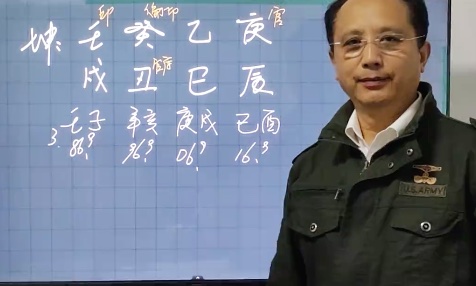 印 偏印 官
坤: 壬 癸 乙 庚
戌 丑 巳 辰
3. 壬子 辛亥 庚戌 己酉
86.9 96.9 06.9 16.9
U.S.ARMY